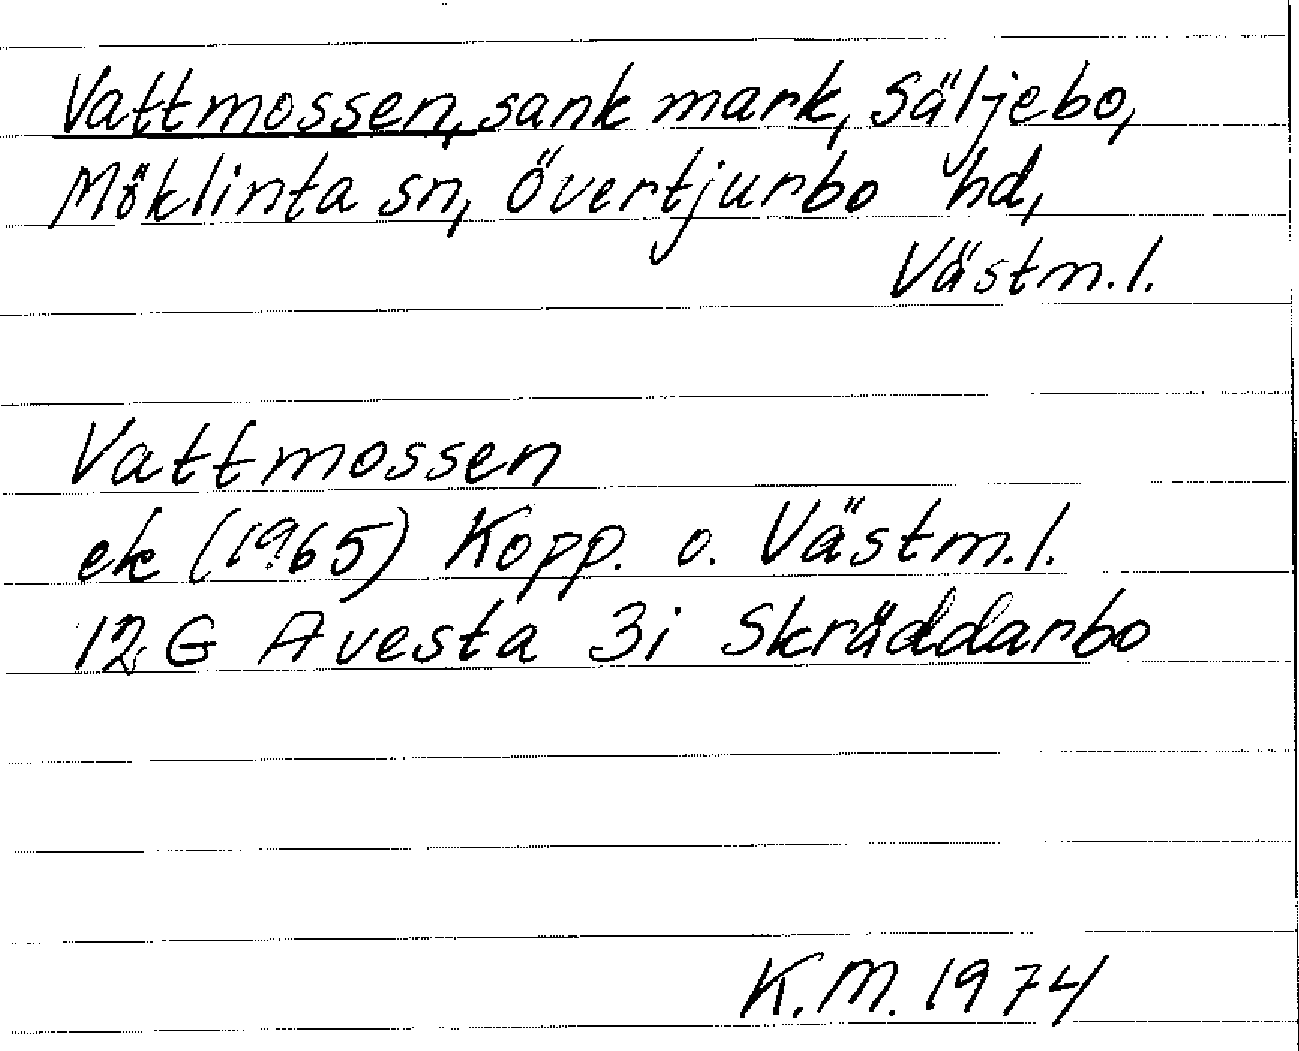 Vattmossen, sank mark, Säljebo,
Möklinta sn, Övertjurbo hd,
Västm.l.
Vattmossen
ek (1965) Kopp. o. Västm.l.
12 G Avesta 3i Skräddarbo
K.M. 1974